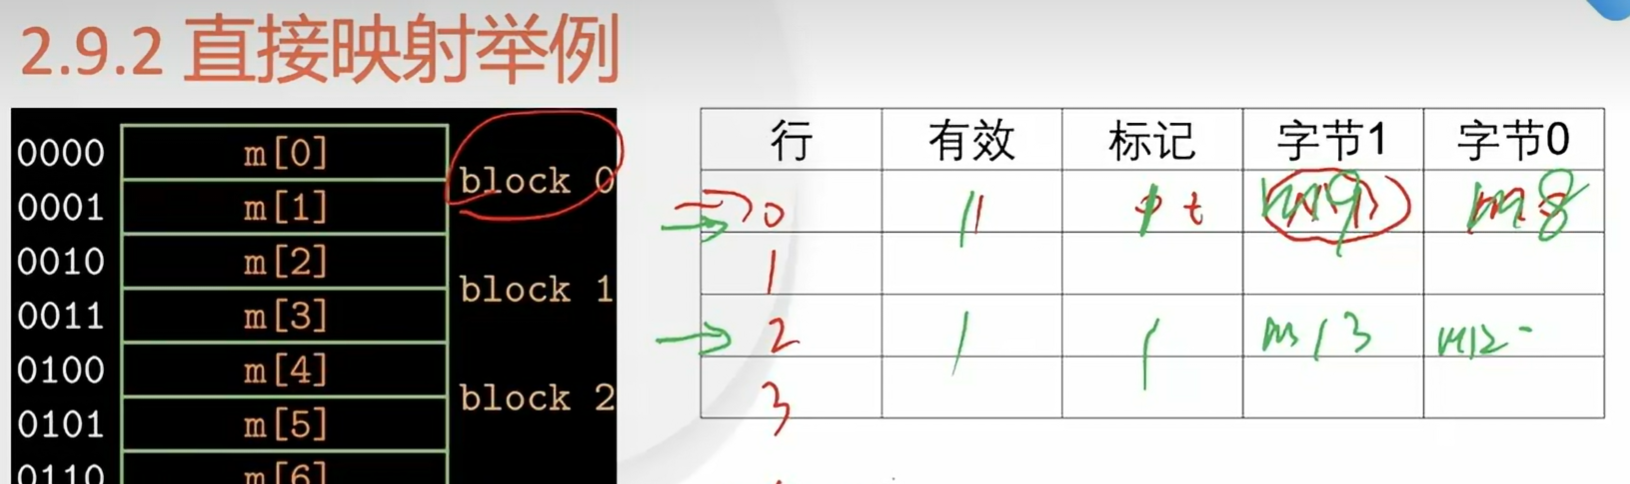 2.9.2 直接映射举例
0000 m[0]
block 0
0001 m[1]
0010 m[2]
block 1
0011 m[3]
0100 m[4]
block 2
0101 m[5]
0110 m[6]
行 有效 标记 字节1 字节0
0 1
1
2 1 1 m13 m12
3